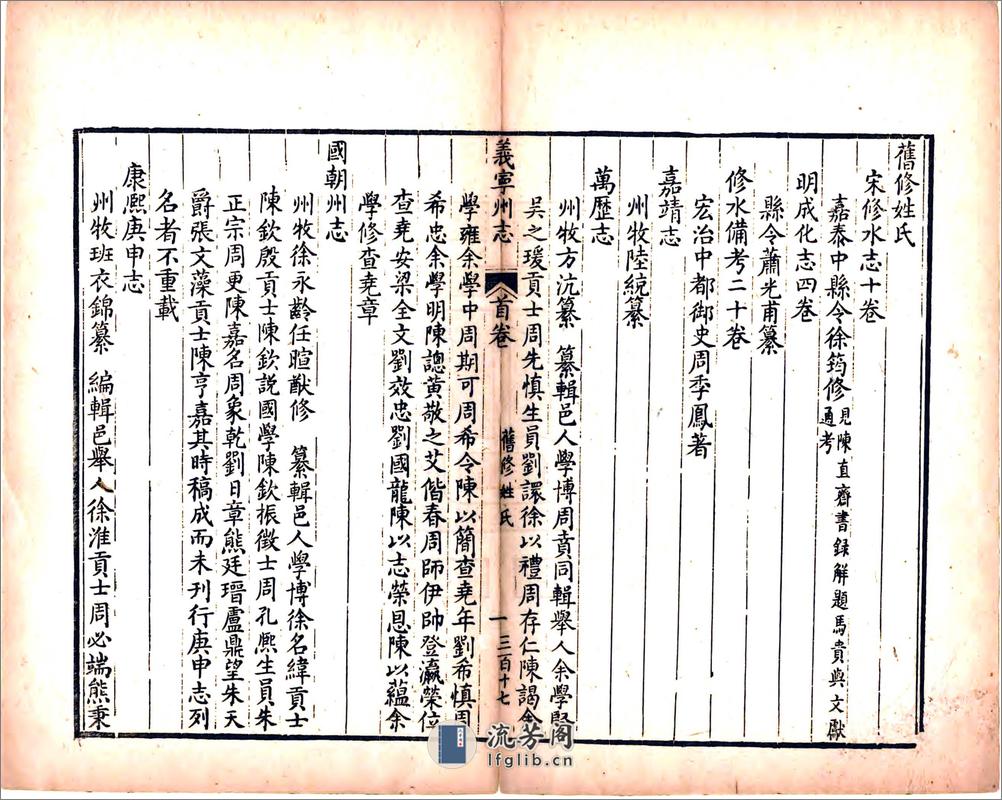 舊修姓氏
宋修水志十卷
嘉泰中縣令徐筠修見陳直齋書録解題馬貴與文獻
通考
明成化志四卷
縣令蕭光甫纂
修水備考二十卷
宏治中都御史周季鳳著
嘉靖志
州牧陸統纂
萬歷志
州牧方沆纂 纂輯邑人學博周賁同輯舉人余學賢
吳之瑗貢士周先慎生員劉譞徐以禮周存仁陳謁余
義寧州志 首卷 舊修姓氏 一 三百十七
學雍余學中周期可周希令陳以簡查堯年劉希慎周
希忠余學明陳諰黃敬之艾偕春周師伊帥登瀛榮位
查堯安梁全文劉效忠劉國龍陳以志榮恩陳以蘊余
學修查堯章
國朝州志
州牧徐永齡任暄猷修 纂輯邑人學博徐名緯貢士
陳欽殷貢士陳欽説國學陳欽振徵士周孔熙生員朱
正宗周更陳嘉名周象乾劉日章熊廷瑨盧鼎望朱天
爵張文藻貢士陳亨嘉其時稿成而未刊行庚申志列
名者不重載
康熙庚申志
州牧班衣錦纂 編輯邑舉人徐淮貢士周必端熊秉
流芳阁
lfglib.cn